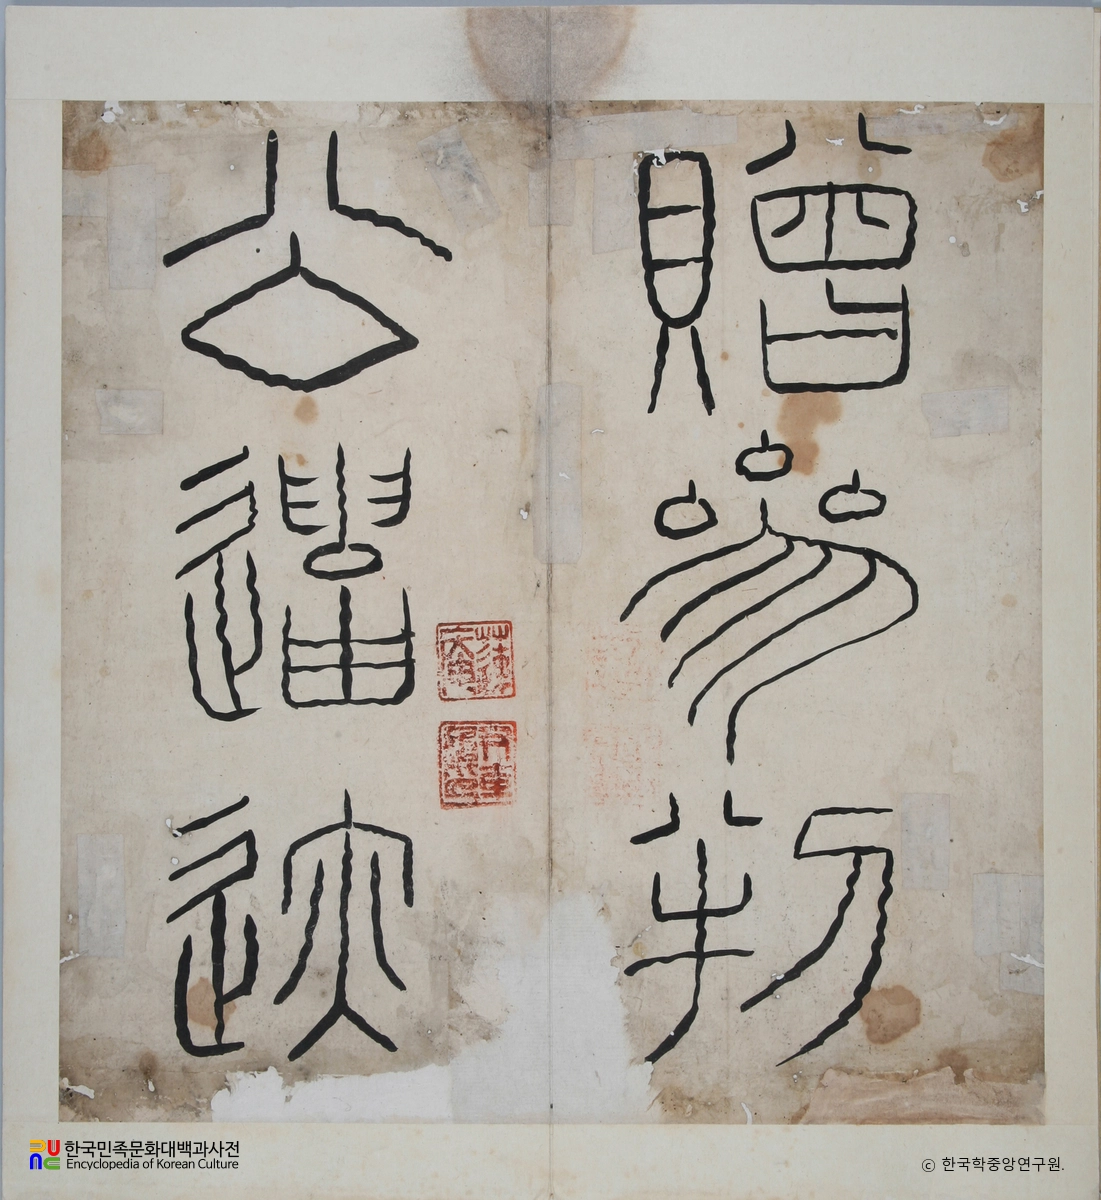 贈參判
公遺迹
한국민족문화대백과사전
Encyclopedia of Korean Culture
ⓒ 한국학중앙연구원.